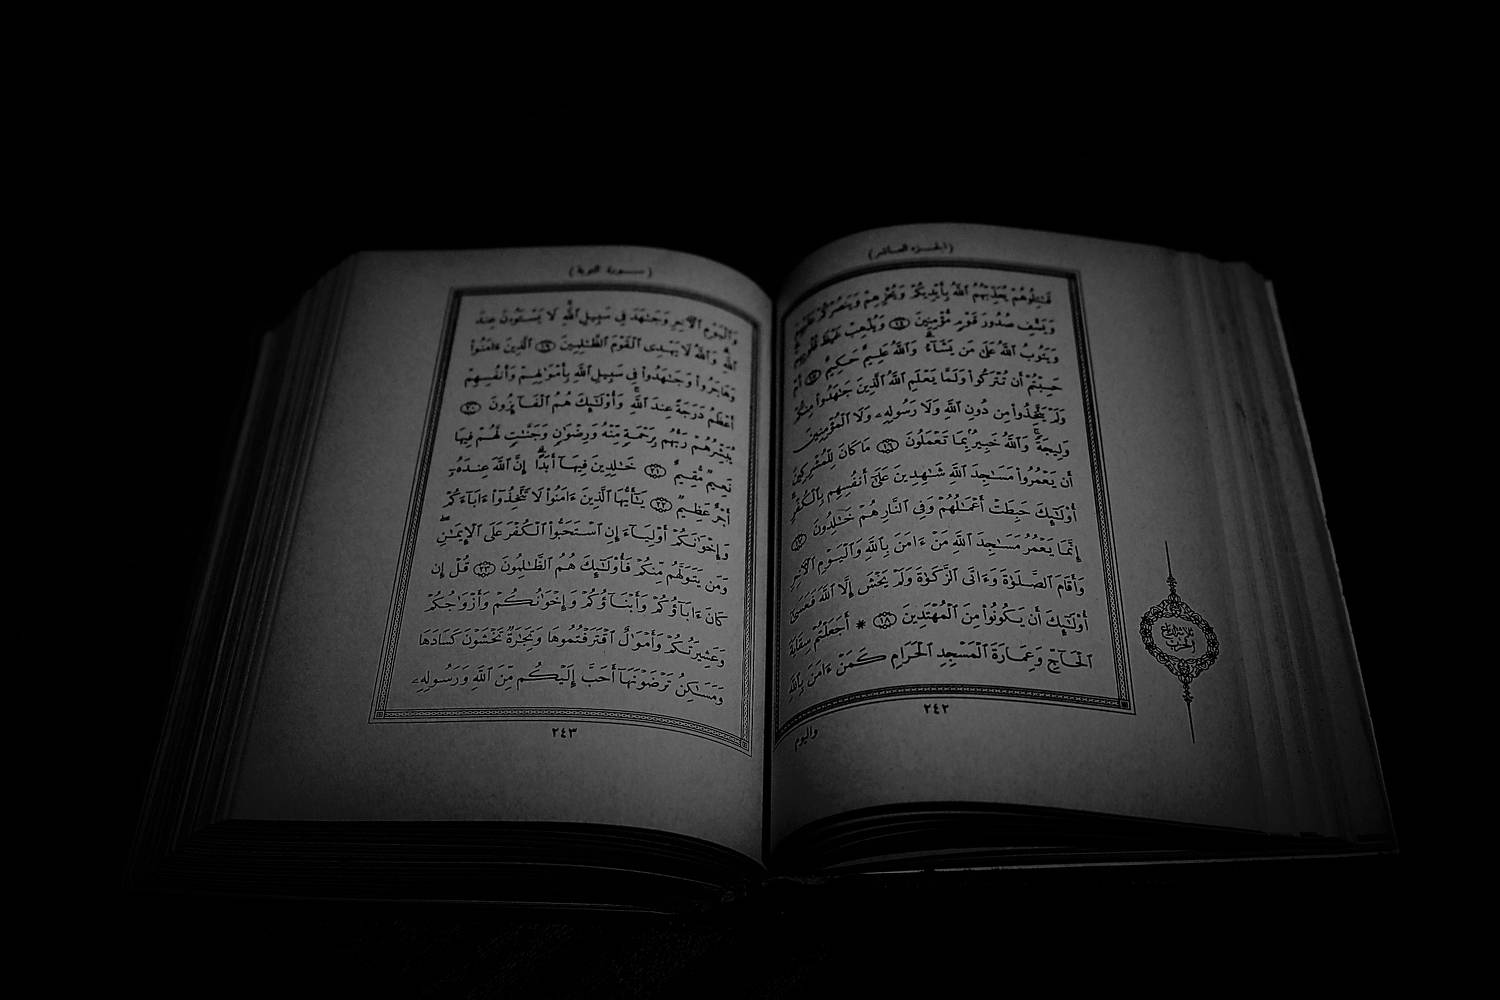 (الجزء العاشر)
قَٰتِلُوهُمْ يُعَذِّبْهُمُ ٱللَّهُ بِأَيْدِيكُمْ وَيُخْزِهِمْ وَيَنصُرْكُمْ عَلَيْهِمْ
وَيَشْفِ صُدُورَ قَوْمٍ مُّؤْمِنِينَ ١٤ وَيُذْهِبْ غَيْظَ قُلُوبِهِمْ
وَيَتُوبُ ٱللَّهُ عَلَىٰ مَن يَشَآءُ ۗ وَٱللَّهُ عَلِيمٌ حَكِيمٌ ١٥ أَمْ
حَسِبْتُمْ أَن تُتْرَكُوا۟ وَلَمَّا يَعْلَمِ ٱللَّهُ ٱلَّذِينَ جَٰهَدُوا۟ مِنكُمْ
وَلَمْ يَتَّخِذُوا۟ مِن دُونِ ٱللَّهِ وَلَا رَسُولِهِۦ وَلَا ٱلْمُؤْمِنِينَ
وَلِيجَةً ۚ وَٱللَّهُ خَبِيرٌۢ بِمَا تَعْمَلُونَ ١٦ مَا كَانَ لِلْمُشْرِكِينَ
أَن يَعْمُرُوا۟ مَسَٰجِدَ ٱللَّهِ شَٰهِدِينَ عَلَىٰٓ أَنفُسِهِم بِٱلْكُفْرِ ۚ
أُو۟لَٰٓئِكَ حَبِطَتْ أَعْمَٰلُهُمْ وَفِى ٱلنَّارِ هُمْ خَٰلِدُونَ ١٧
إِنَّمَا يَعْمُرُ مَسَٰجِدَ ٱللَّهِ مَنْ ءَامَنَ بِٱللَّهِ وَٱلْيَوْمِ ٱلْءَاخِرِ
وَأَقَامَ ٱلصَّلَوٰةَ وَءَاتَى ٱلزَّكَوٰةَ وَلَمْ يَخْشَ إِلَّا ٱللَّهَ ۖ فَعَسَىٰٓ
أُو۟لَٰٓئِكَ أَن يَكُونُوا۟ مِنَ ٱلْمُهْتَدِينَ ١٨ * أَجَعَلْتُمْ سِقَايَةَ
ٱلْحَآجِّ وَعِمَارَةَ ٱلْمَسْجِدِ ٱلْحَرَامِ كَمَنْ ءَامَنَ بِٱللَّهِ
ثلاثة أرباع
الحزب
٢٤٢
واليوم
(سورة التوبة)
وَٱلْيَوْمِ ٱلْءَاخِرِ وَجَٰهَدَ فِى سَبِيلِ ٱللَّهِ ۚ لَا يَسْتَوُۥنَ عِندَ
ٱللَّهِ ۗ وَٱللَّهُ لَا يَهْدِى ٱلْقَوْمَ ٱلظَّٰلِمِينَ ١٩ ٱلَّذِينَ ءَامَنُوا۟
وَهَاجَرُوا۟ وَجَٰهَدُوا۟ فِى سَبِيلِ ٱللَّهِ بِأَمْوَٰلِهِمْ وَأَنفُسِهِمْ
أَعْظَمُ دَرَجَةً عِندَ ٱللَّهِ ۚ وَأُو۟لَٰٓئِكَ هُمُ ٱلْفَآئِزُونَ ٢٠
يُبَشِّرُهُمْ رَبُّهُم بِرَحْمَةٍ مِّنْهُ وَرِضْوَٰنٍ وَجَنَّٰتٍ لَّهُمْ فِيهَا
نَعِيمٌ مُّقِيمٌ ٢١ خَٰلِدِينَ فِيهَآ أَبَدًا ۚ إِنَّ ٱللَّهَ عِندَهُۥٓ
أَجْرٌ عَظِيمٌ ٢٢ يَٰٓأَيُّهَا ٱلَّذِينَ ءَامَنُوا۟ لَا تَتَّخِذُوٓا۟ ءَابَآءَكُمْ
وَإِخْوَٰنَكُمْ أَوْلِيَآءَ إِنِ ٱسْتَحَبُّوا۟ ٱلْكُفْرَ عَلَى ٱلْإِيمَٰنِ ۚ
وَمَن يَتَوَلَّهُم مِّنكُمْ فَأُو۟لَٰٓئِكَ هُمُ ٱلظَّٰلِمُونَ ٢٣ قُلْ إِن
كَانَ ءَابَآؤُكُمْ وَأَبْنَآؤُكُمْ وَإِخْوَٰنُكُمْ وَأَزْوَٰجُكُمْ
وَعَشِيرَتُكُمْ وَأَمْوَٰلٌ ٱقْتَرَفْتُمُوهَا وَتِجَٰرَةٌ تَخْشَوْنَ كَسَادَهَا
وَمَسَٰكِنُ تَرْضَوْنَهَآ أَحَبَّ إِلَيْكُم مِّنَ ٱللَّهِ وَرَسُولِهِۦ
٢٤٣